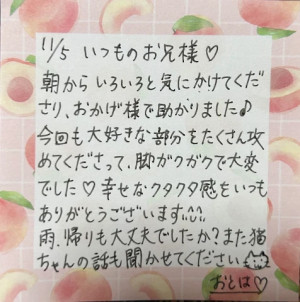 11/5 いつものお兄様♡
朝からいろいろと気にかけてくだ
さり、おかげ様で助かりました♪
今回も大好きな部分をたくさん攻
めてくださって、脚がガクガクで大変
でした♡ 幸せなクタクタ感をいつも
ありがとうございます
雨、帰りも大丈夫でしたか？また猫
ちゃんの話も聞かせてください
おとは♡